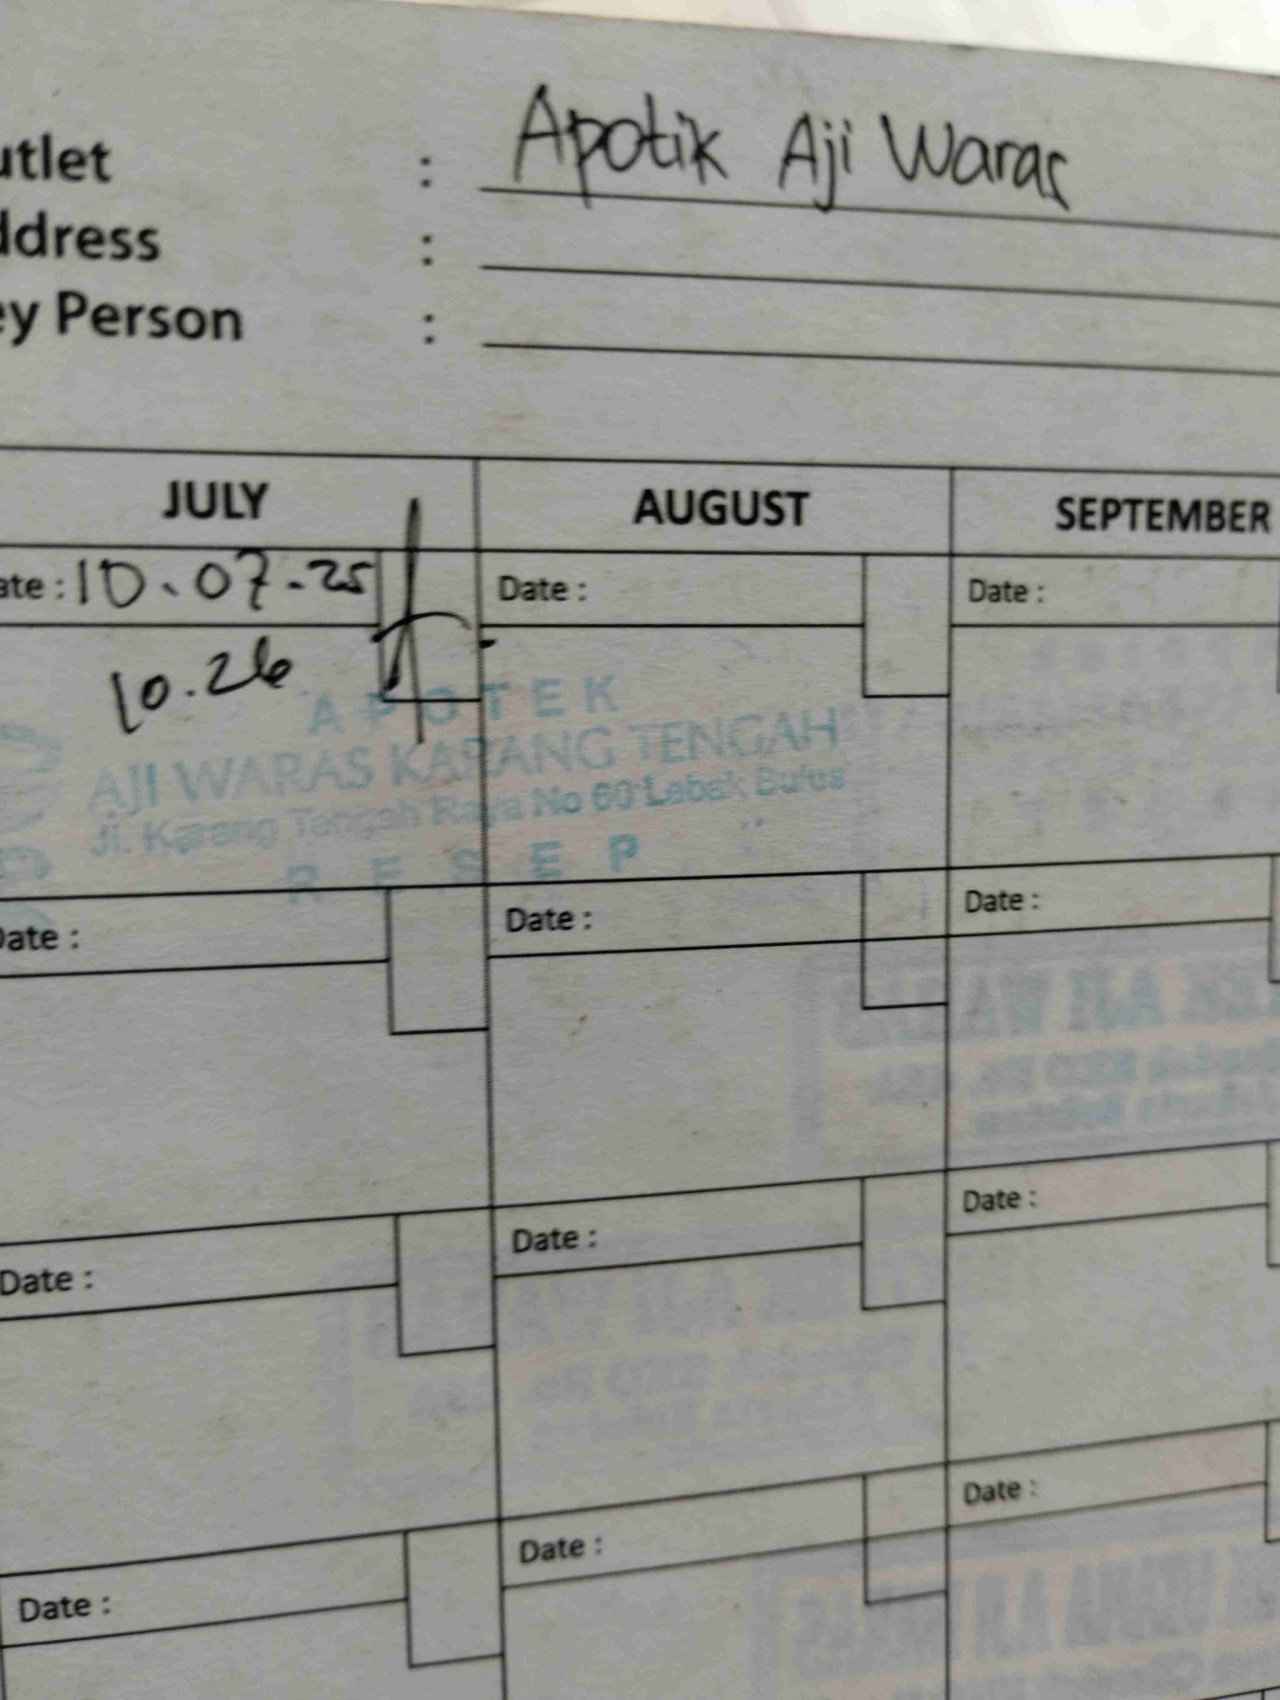 utlet : Apotik Aji Waras
ddress :
ey Person :
JULY AUGUST SEPTEMBER
ate : 10.07.25 Date : Date :
10.26
APOTEK
AJI WARAS KARANG TENGAH
Jl. Karang Tengah Raya No 60 Lebak Bulus
RESEP
Date : Date : Date :
Date : Date : Date :
Date : Date : Date :